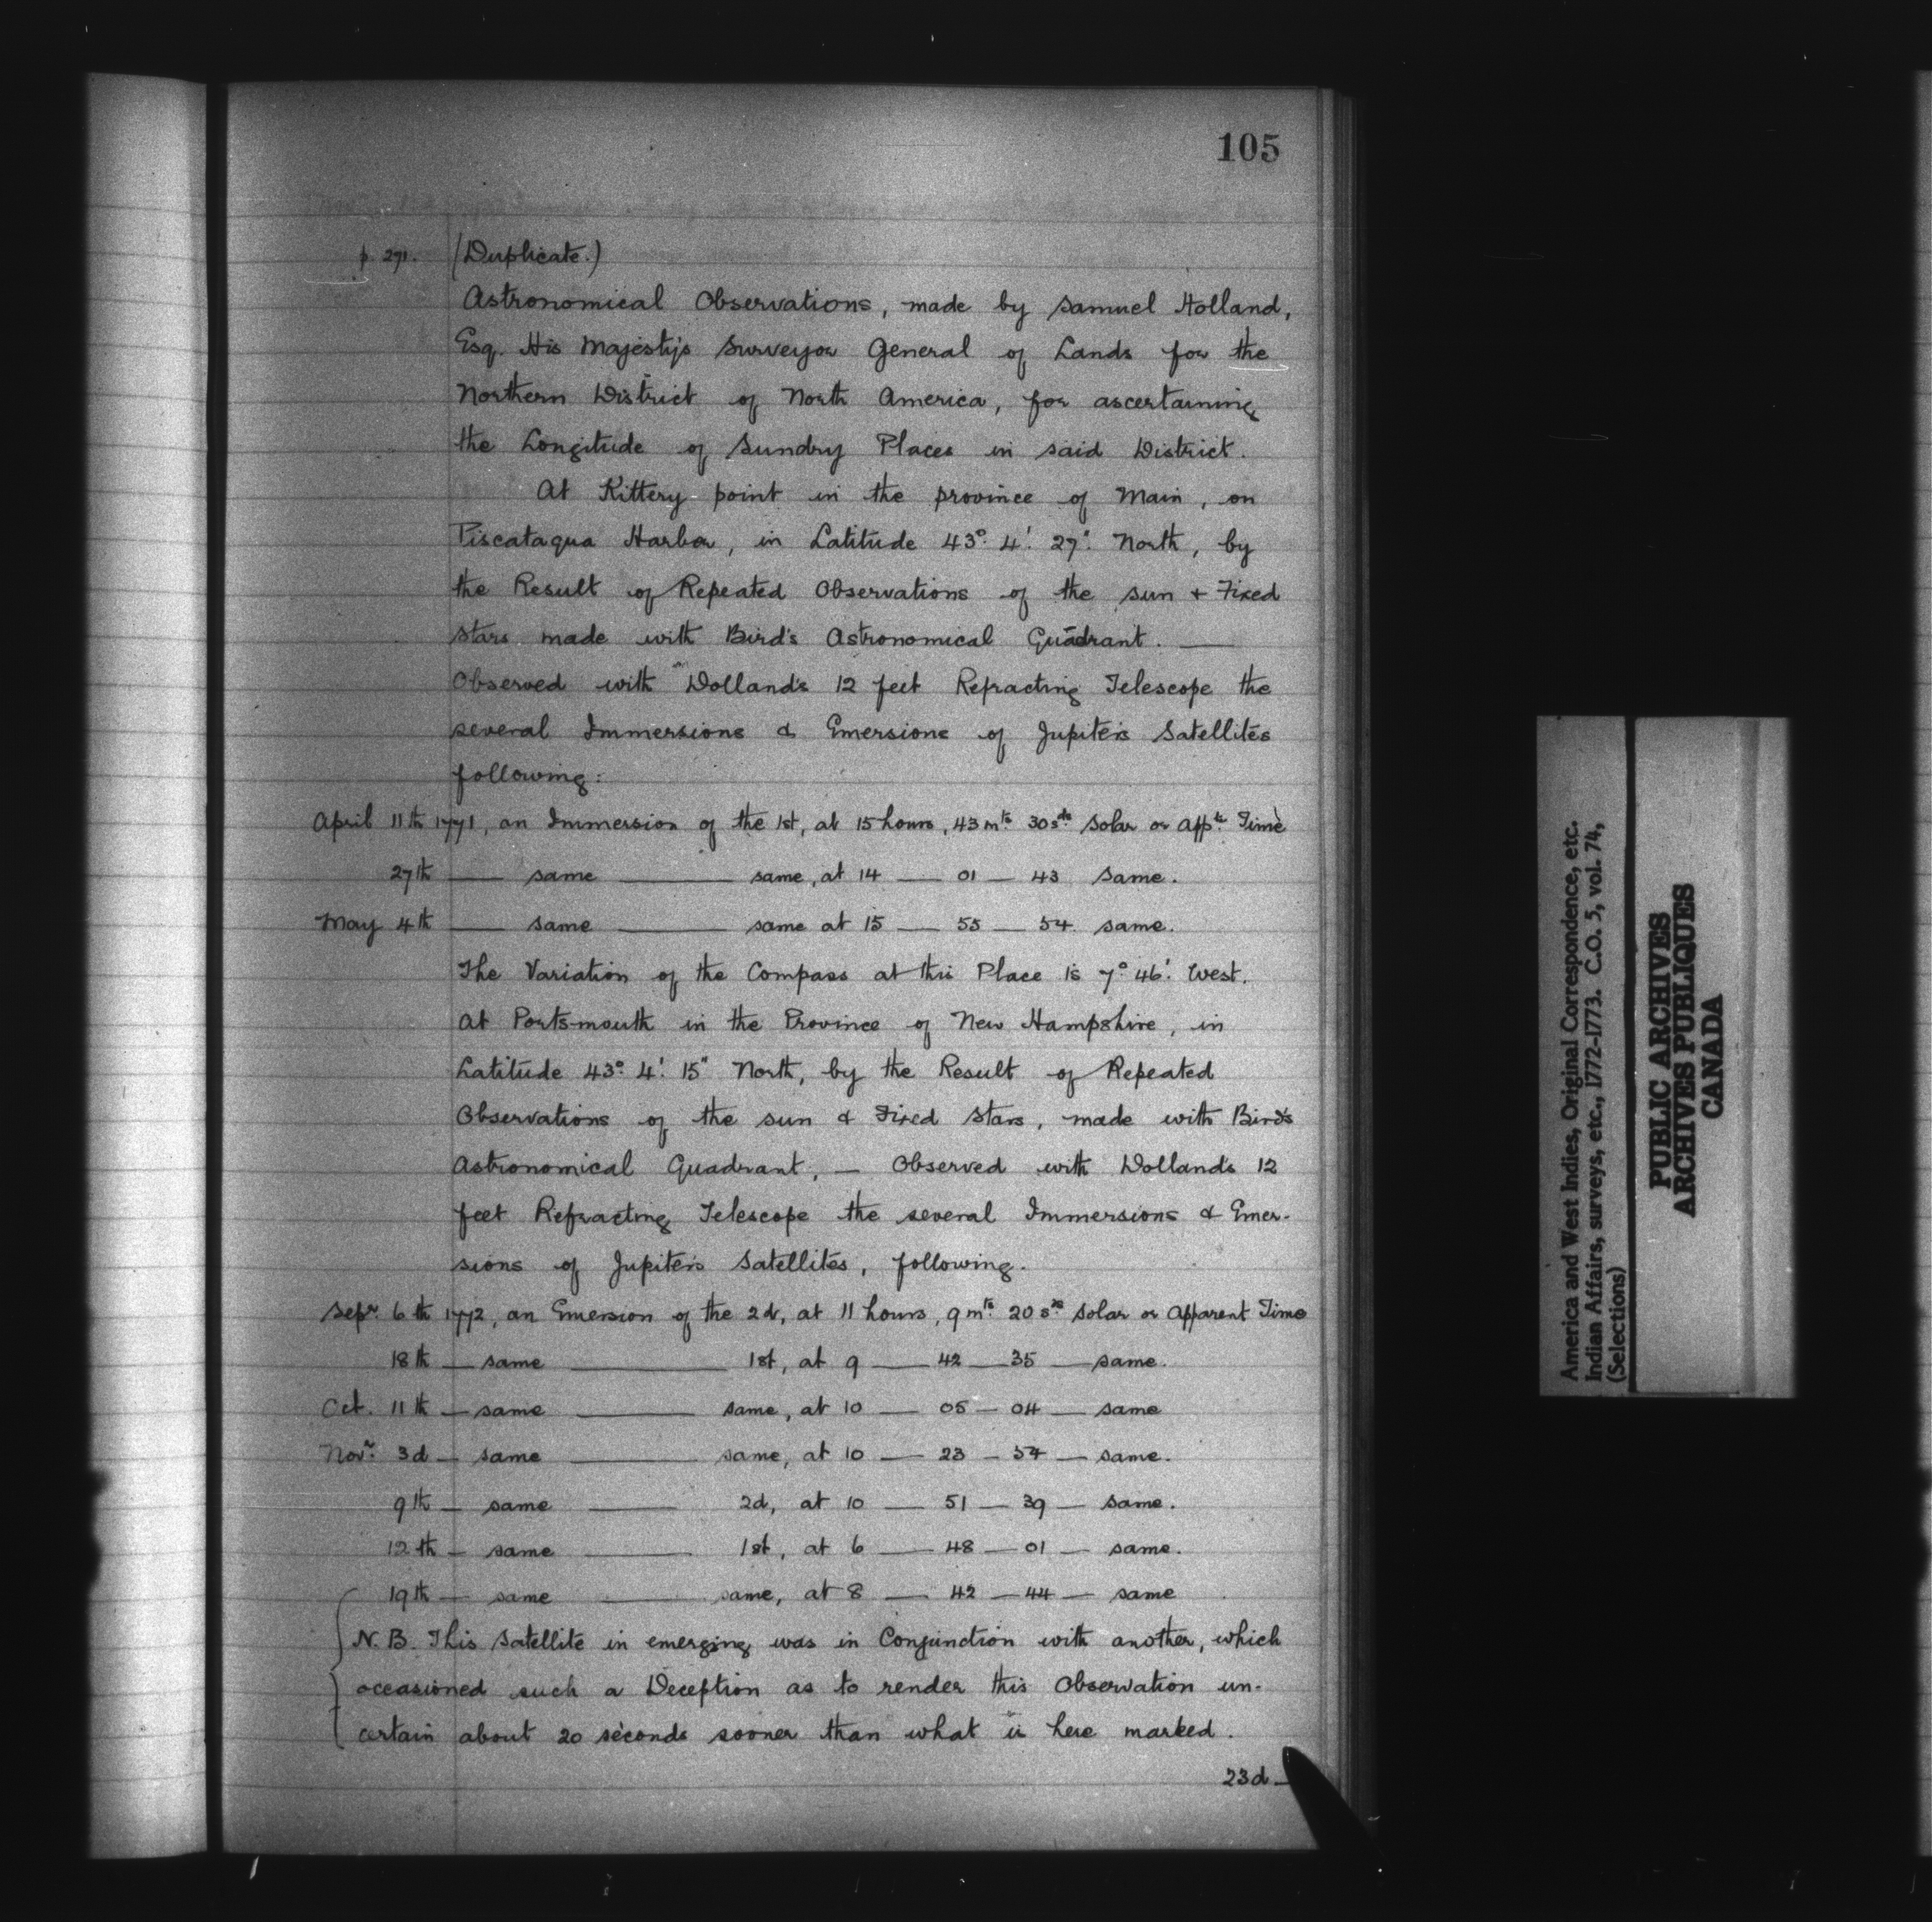 105
p. 291. (Duplicate.)
Astronomical Observations, made by Samuel Holland,
Esq. His Majesty's Surveyor General of Lands for the
Northern District of North America, for ascertaining
the Longitude of Sundry Places in said District.
At Kittery point in the province of Main, on
Piscataqua Harbor, in Latitude 43°. 4'. 27". North, by
the Result of Repeated Observations of the sun & Fixed
stars made with Bird's Astronomical Quadrant. —
Observed with Dolland's 12 feet Refracting Telescope the
several Immersions & Emersions of Jupiter's Satellites
following:
April 11th 1771, an Immersion of the 1st, at 15 hours, 43 mts. 30 sds Solar or appt. Time
27th — same — same, at 14 — 01 — 43 same.
May 4th — same — same at 15 — 55 — 54 same.
The Variation of the Compass at this Place is 7°. 46'. West.
At Portsmouth in the Province of New Hampshire, in
Latitude 43°. 4'. 15" North, by the Result of Repeated
Observations of the sun & Fixed Stars, made with Bird's
Astronomical Quadrant, — Observed with Dolland's 12
feet Refracting Telescope the several Immersions & Emer-
sions of Jupiter's Satellites, following.
Sepr. 6th 1772, an Emersion of the 2d, at 11 hours, 9 mts. 20 sds Solar or Apparent Time
18th — same — 1st, at 9 — 42 — 35 — same.
Oct. 11th — same — same, at 10 — 05 — 04 — same
Novr. 3d — same — same, at 10 — 23 — 54 — same.
9th — same — 2d, at 10 — 51 — 39 — same.
12th — same — 1st, at 6 — 48 — 01 — same.
19th — same — same, at 8 — 42 — 44 — same
N.B. This Satellite in emerging was in Conjunction with another, which
occasioned such a Deception as to render this Observation un-
certain about 20 seconds sooner than what is here marked.
23d —
America and West Indies, Original Correspondence, etc.
Indian Affairs, surveys, etc., 1772-1773. C.O. 5, vol. 74,
(Selections)
PUBLIC ARCHIVES
ARCHIVES PUBLIQUES
CANADA